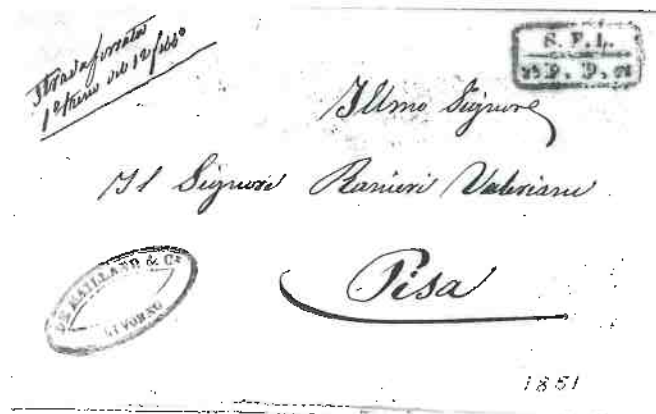 Strada ferrata
1° Treno del 12 febb°
S. F. L.
P. D.
Illmo Signore
Il Signore Ranieri Valeriani
Pisa
DE MAILLAND & Cº
LIVORNO
1851